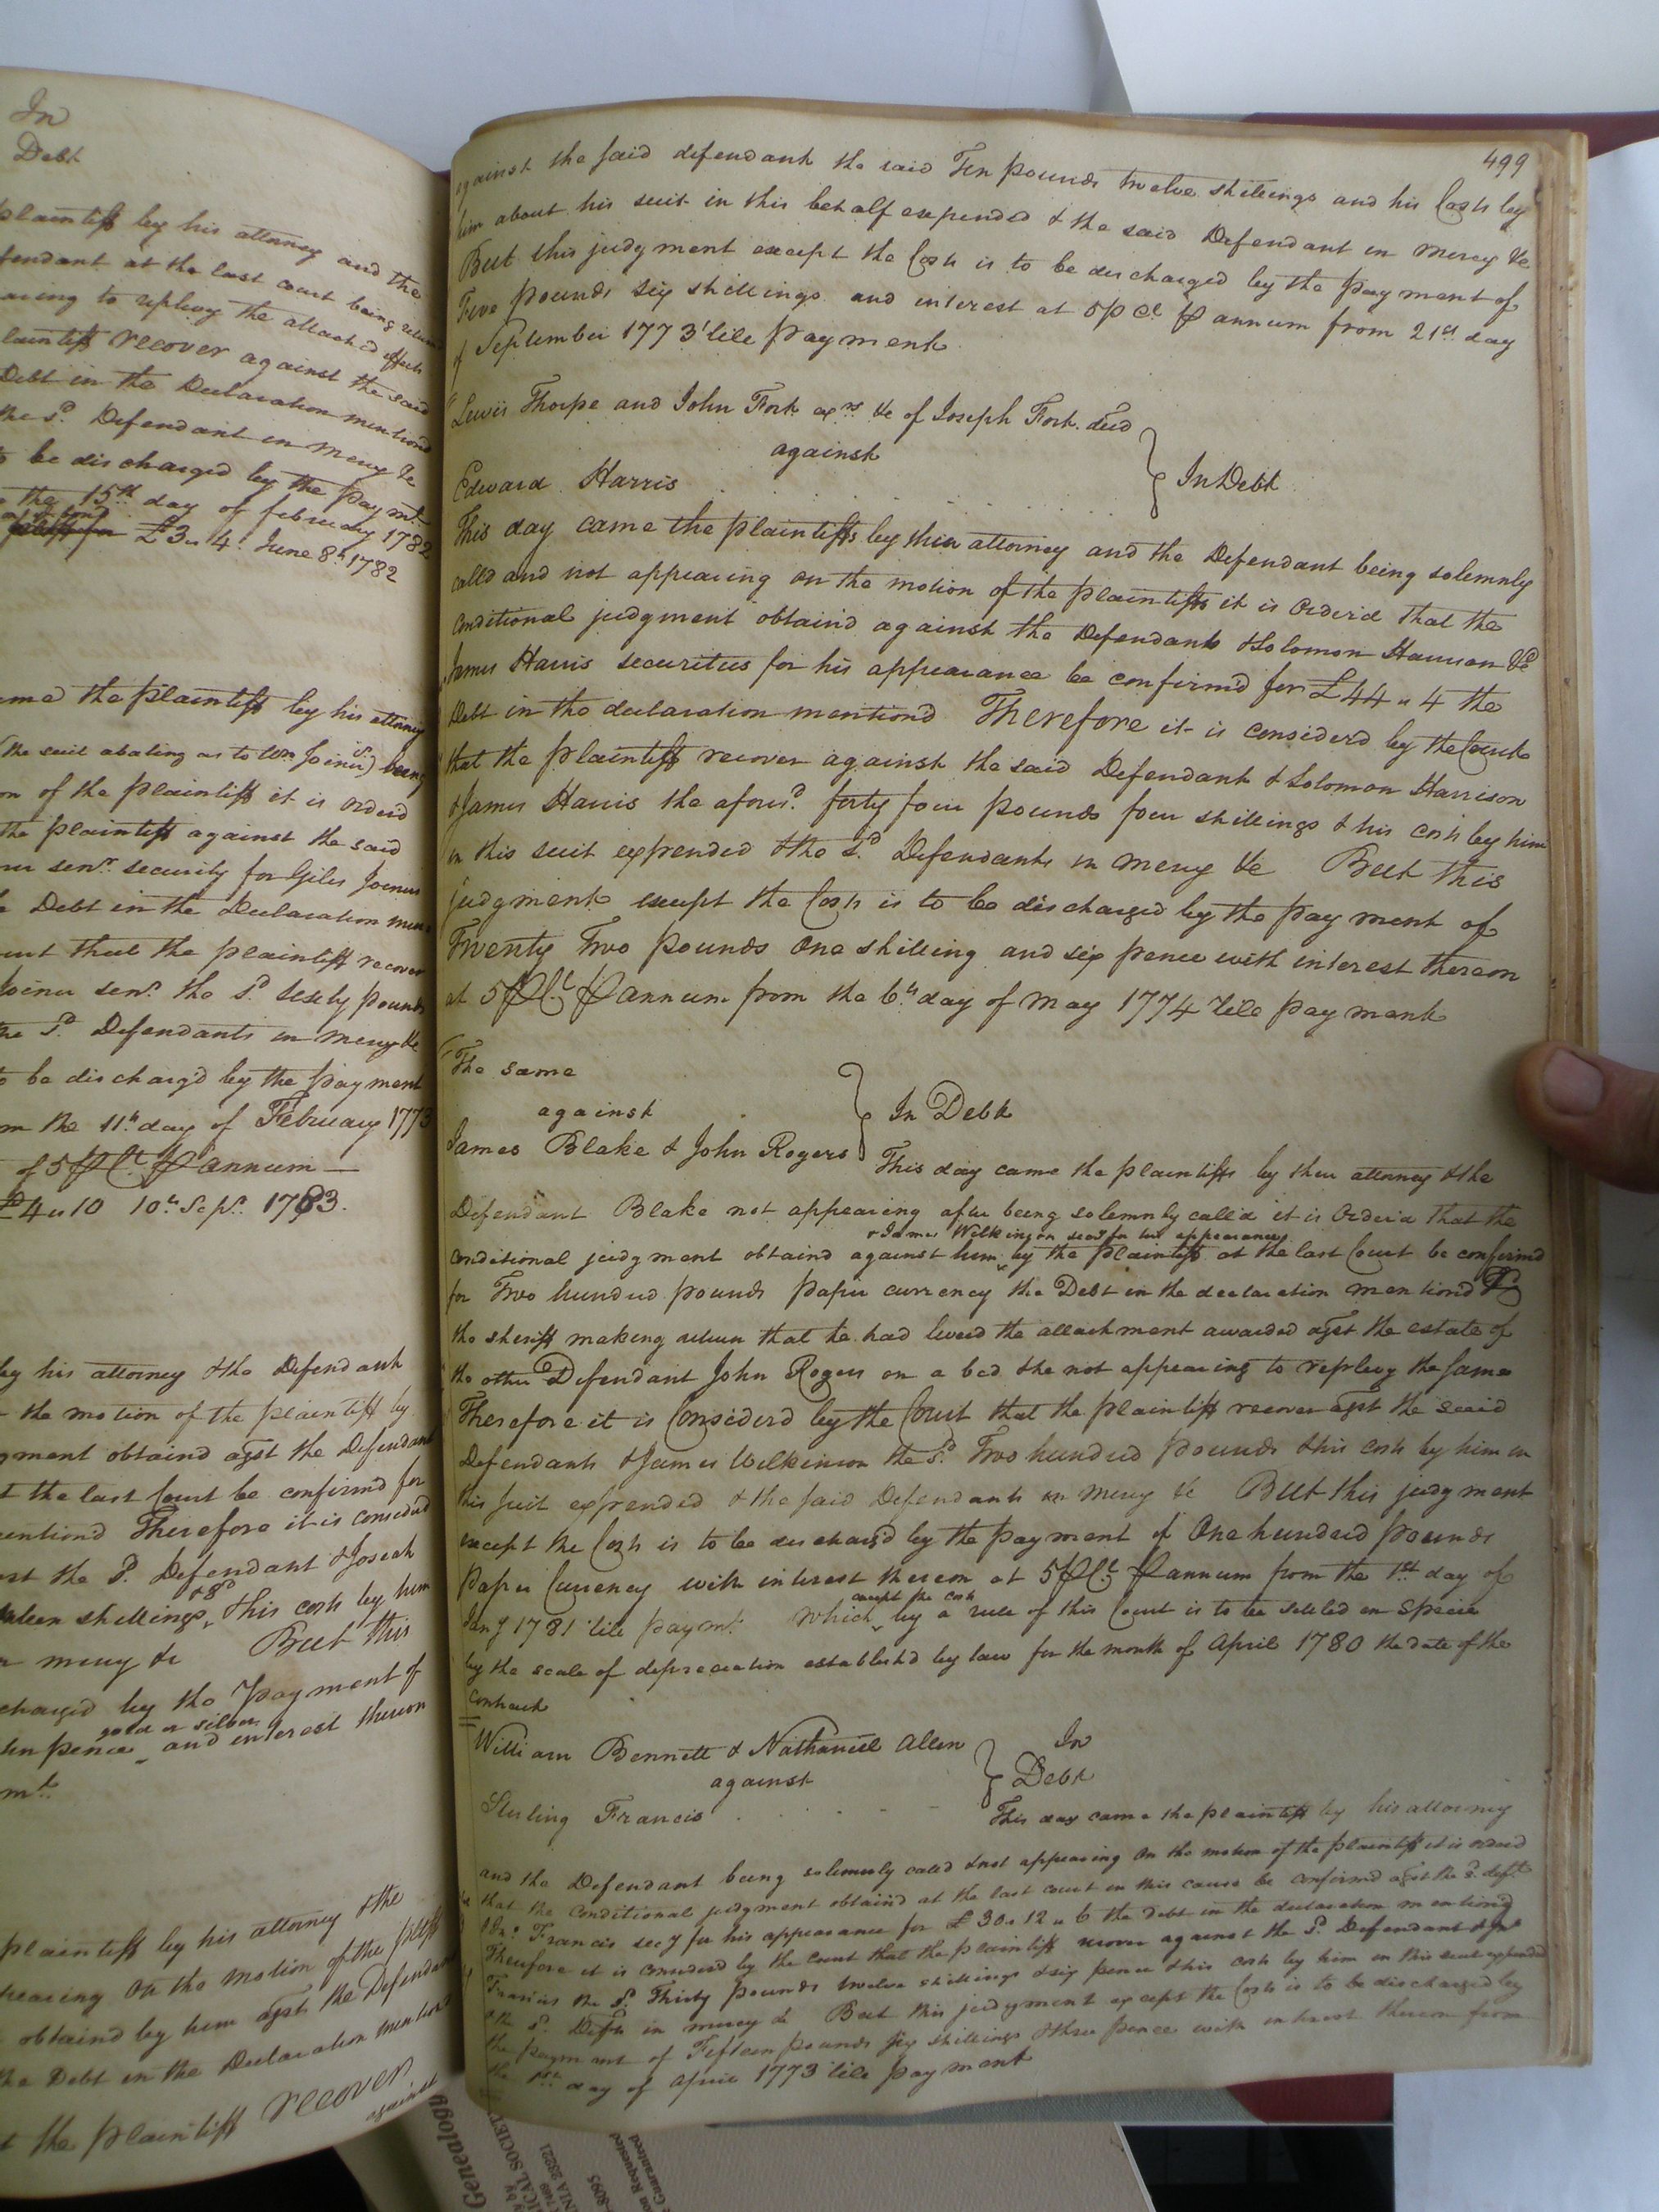 In
Debt
plaintiff by his attorney and the
fendant at the last court being
to replevy the attach'd effects
plaintiff recover against the said
Debt in the Declaration mentiond
the sd. Defendant in mercy &c
to be discharged by the paymt.
the 15th day of february 1782
£3 " 4 June 8th 1782
the plaintiff by his attorney
the suit abating as to Wm Joiner) being
on of the plaintiff it is orderd
the plaintiff against the said
senr. security for Giles Joiner
Debt in the Declaration
that the plaintiff recover
Joiner senr. the sd. sixty pounds
the sd. Defendants in mercy &c
to be discharg'd by the payment
the 11th day of February 1773
of 5 P Ct. P annum
£4 " 10 10th Sepr. 1783.
by his attorney & the Defendant
the motion of the plaintiff by
obtaind agst the Defendant
the last Court be confirm'd for
mentiond Therefore it is considerd
the sd. Defendant & Joseph
shillings & 8d & his costs by him
mercy &c But this
charged by the payment of
gold or silver
pence and interest thereon
plaintiff by his attorney & the
on the motion of the pltff
obtaind by him agst the Defendant
the Debt in the Declaration mentiond
the plaintiff recover
against
499
against the said defendant the said Ten pounds twelve shillings and his Costs by
him about his suit in this behalf expended & the said Defendant in mercy &c
But this judgment except the Costs is to be discharged by the payment of
Five pounds six shillings and interest at 5 p Ct. P annum from 21st day
of September 1773 'till payment
Lewis Thorpe and John Fort exrs. &c of Joseph Fort decd
against
Edward Harris
In Debt
This day came the plaintiffs by their attorney and the Defendant being solemnly
calld and not appearing on the motion of the plaintiffs it is Order'd that the
conditional judgment obtain'd against the Defendants & Solomon Harrison &
James Harris securities for his appearance be confirm'd for £44 " 4 the
Debt in the declaration mention'd Therefore it is considerd by the Court
that the plaintiff recover against the said Defendant & Solomon Harrison
& James Harris the afores.d forty four pounds four shillings & his costs by him
in this suit expended & the sd. Defendants in mercy &c But this
judgment except the Costs is to be discharged by the payment of
Twenty Two pounds One shilling and six pence with interest thereon
at 5 P Ct. P annum from the 6th day of May 1774 'till payment
The same
against
James Blake & John Rogers
In Debt
This day came the plaintiffs by their attorney & the
Defendant Blake not appearing after being solemnly call'd it is Order'd that the
& James Wilkinson secy for his appearance
conditional judgment obtaind against him by the plaintiff at the last Court be confirmd
for Two hundred pounds paper currency the Debt in the declaration mentiond &
the sheriff making return that he had levied the attachment awarded agst the estate of
the other Defendant John Rogers on a bed & he not appearing to replevy the same
Therefore it is Considerd by the Court that the plaintiff recover agst the said
Defendants & James Wilkinson the sd. Two hundred pounds & his costs by him in
this suit expended & the said Defendants in mercy &c But this judgment
except the Costs is to be discharg'd by the payment of One hundred pounds
paper Currency with interest thereon at 5 P Ct. P annum from the 1st day of
except the costs
Jany 1781 'till paymt. which by a rule of this Court is to be settled in specie
by the scale of depreciation establish'd by law for the month of April 1780 the date of the
contract
William Bennett & Nathaniel Allen
against
Sterling Francis
In
Debt
This day came the plaintiff by his attorney
and the Defendant being solemnly called & not appearing On the motion of the plaintiff it is orderd
that the conditional judgment obtaind at the last court in this cause be confirmd agst the sd. deft.
Francis secy for his appearance for £30 " 12 " 6 the debt in the declaration mentiond
Therefore it is considerd by the court that the plaintiff recover against the sd. Defendant &
Francis the sd. Thirty pounds twelve shillings & six pence & his costs by him in this suit expended
& the sd. Defts in mercy &c But this judgment except the Costs is to be discharged by
the payment of Fifteen pounds six shillings & three pence with interest thereon from
the 1st day of April 1773 'till payment
Genealogy